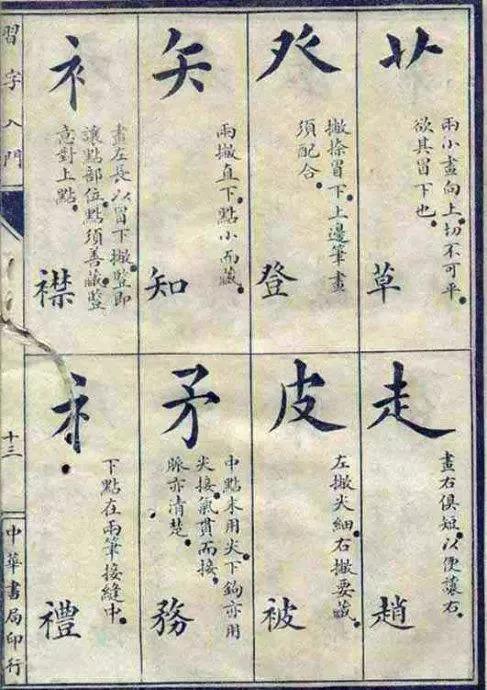 艹
兩小畫向上。切不可平。
欲其冒下也。
草
癶
撇捺冒下。上邊筆畫
須配合。
登
矢
兩撇直下。點小而藏。
知
衤
畫左長。以冒下撇。豎即
讓點部位。點須善藏。豎
意對上點。
襟
走
畫右俱短。以便讓右。
趙
皮
左撇尖細。右撇要藏。
被
矛
中點末用尖。下鉤亦用
尖接。氣貫而接。
脈亦清楚。
務
礻
下點在兩筆接縫中。
禮
習字入門
十三
中華書局印行